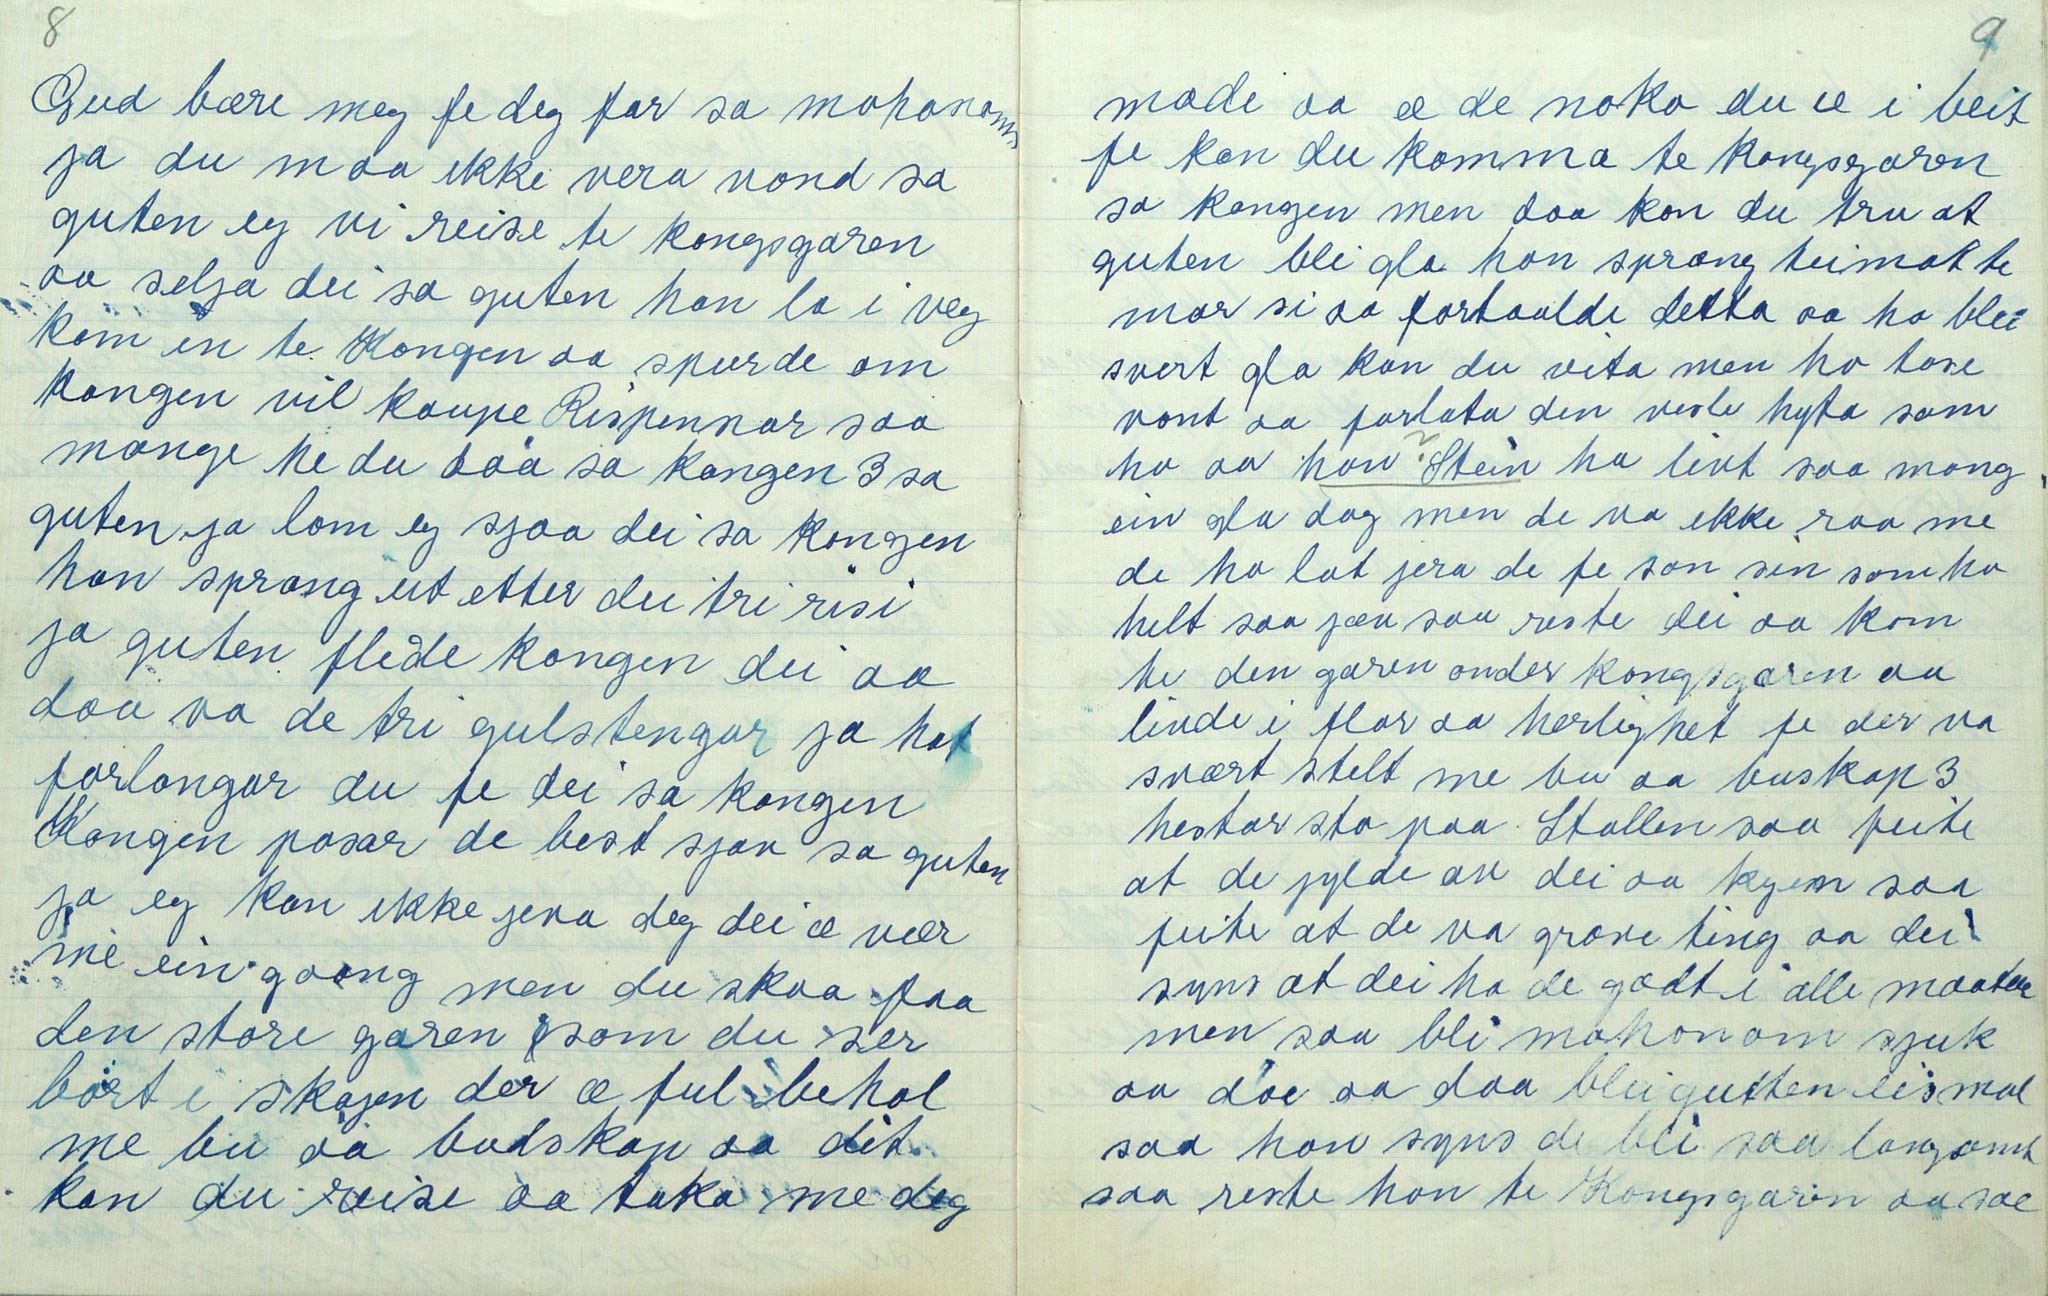 8
Gud bære meg fe deg far sa mohonom
ja du maa ikke vera vond sa
guten eg vi reise te kongsgaren
aa selja dei sa guten han la i veg
kom in te Kongen aa spurde om
kongen vil kaupe Rispennar saa
mange he du daa sa kongen 3 sa
guten ja lom eg sjaa dei sa kongen
han sprang ut etter dei tri risi
ja guten fleide kongen dei aa
daa va de tri gulstengar ja hat
forlangar du fe dei sa kongen
Kongen posar de best sjøv sa guten
ja eg kan ikke jeva deg dei æ vær
me ein gaang men du skaa faa
den store garen som du ser
bort i skogen der æ ful behol
me bu aa budskap aa dit
kan du reise aa taka me deg
9
modi aa æ de noko du æ i beit
fe kan du komma te kongsgaren
sa kongen men daa kan du tru at
guten blei gla han sprang heimat te
mor si aa fortaalde detta aa ho blei
svert gla kan du vita men ho tose
vont aa forlata den vesle hyta som
ho aa han Stein ha livt saa mang
ein gla dag men de va ikke raa me
de ho lut jera de fe son sin som ho
helt saa jæv saa reste dei aa kom
te den garen onder kongsgaren aa
livde i flor aa herlighet fe der va
svært stelt me bu aa buskap 3
hestar sto paa Stallen saa feite
at de jylde av dei aa kyem saa
feite at de va grove ting aa dei
syns at dei ha de godt i alle maatar
men saa blei mohonom sjuk
aa doe aa daa blei guten eismal
saa han syns de blei saa langsomt
saa reste han te Kongsgaren aa sae